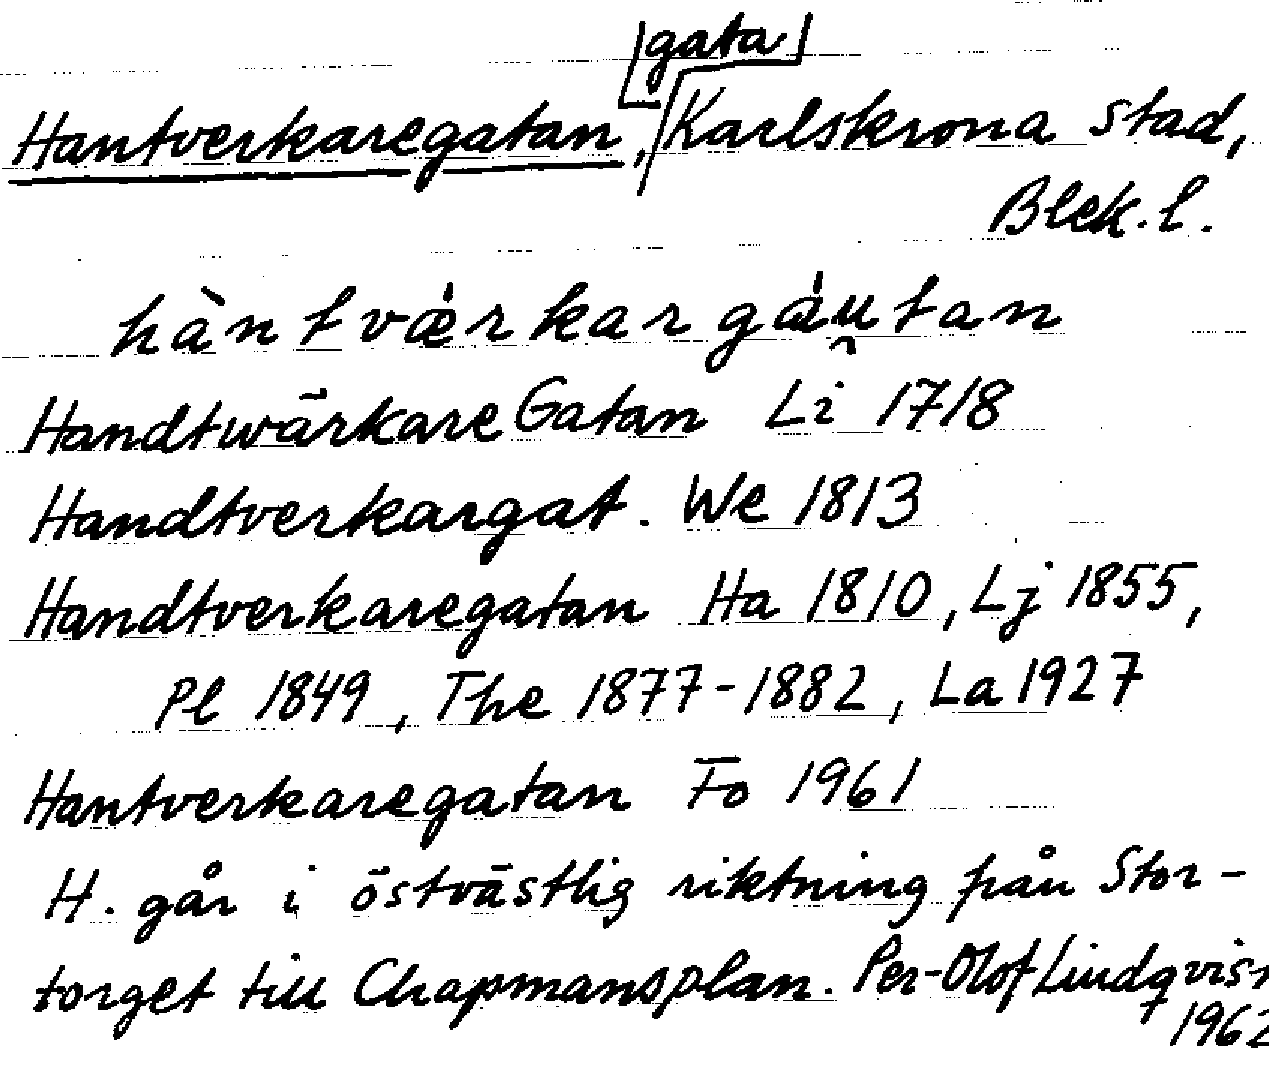 [gata]
Hantverkaregatan, Karlskrona stad,
Blek. l.
hàntvæ̀rkargáu̯tan
Handtwärkare Gatan Li 1718
Handtverkargat. We 1813
Handtverkaregatan Ha 1810, Lj 1855,
Pl 1849, The 1877-1882, La 1927
Hantverkaregatan Fo 1961
H. går i östvästlig riktning från Stor-
torget till Chapmansplan. Per-Olof Lindqvist
1962